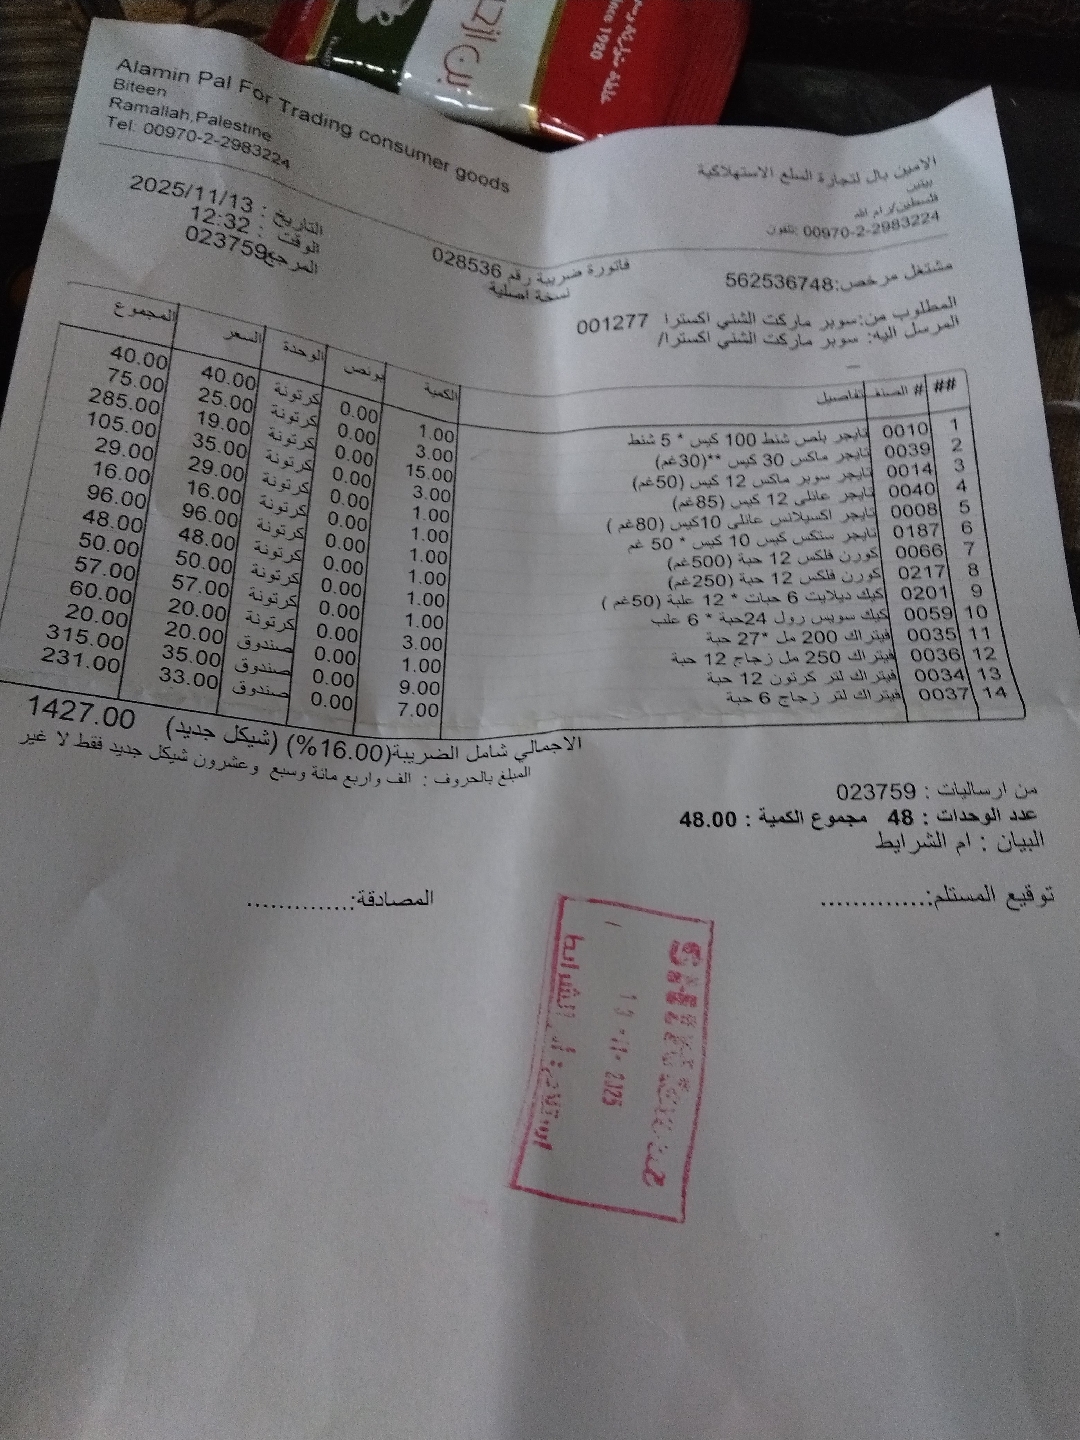 بن ازحـ
Since 1920
Alamin Pal For Trading consumer goods
Biteen
Ramallah,Palestine
Tel: 00970-2-2983224
الامين بال لتجارة السلع الاستهلاكية
بيتين
فلسطين/رام الله
00970-2-2983224 :تلفون
التاريخ : 2025/11/13
الوقت : 12:32
المرجع: 023759
فاتورة ضريبة رقم 028536
نسخة اصلية
مشتغل مرخص:562536748
المطلوب من:سوبر ماركت الشني اكسترا 001277
المرسل اليه: سوبر ماركت الشني اكسترا/
## # الصنف تفاصيل الكمية بونص الوحدة السعر المجموع
1 0010 تايجر بلص شنط 100 كيس * 5 شنط 1.00 0.00 كرتونة 40.00 40.00
2 0039 تايجر ماكس 30 كيس **(30غم) 3.00 0.00 كرتونة 25.00 75.00
3 0014 تايجر سوبر ماكس 12 كيس (50غم) 15.00 0.00 كرتونة 19.00 285.00
4 0040 تايجر عائلي 12 كيس (85غم) 3.00 0.00 كرتونة 35.00 105.00
5 0008 تايجر اكسيلانس عائلي 10كيس (80غم ) 1.00 0.00 كرتونة 29.00 29.00
6 0187 تايجر ستكس كيس 10 كيس * 50 غم 1.00 0.00 كرتونة 16.00 16.00
7 0066 كورن فلكس 12 حبة (500غم) 1.00 0.00 كرتونة 96.00 96.00
8 0217 كورن فلكس 12 حبة (250غم) 1.00 0.00 كرتونة 48.00 48.00
9 0201 كيك ديلايت 6 حبات * 12 علبة (50غم ) 1.00 0.00 كرتونة 50.00 50.00
10 0059 كيك سويس رول 24حبة * 6 علب 1.00 0.00 كرتونة 57.00 57.00
11 0035 فيتراك 200 مل *27 حبة 3.00 0.00 كرتونة 20.00 60.00
12 0036 فيتراك 250 مل زجاج 12 حبة 1.00 0.00 صندوق 20.00 20.00
13 0034 فيتراك لتر كرتون 12 حبة 9.00 0.00 صندوق 35.00 315.00
14 0037 فيتراك لتر زجاج 6 حبة 7.00 0.00 صندوق 33.00 231.00
الاجمالي شامل الضريبة(16.00%) (شيكل جديد) 1427.00
المبلغ بالحروف : الف واربع مائة وسبع وعشرون شيكل جديد فقط لا غير
من ارساليات : 023759
عدد الوحدات : 48 مجموع الكمية : 48.00
البيان : ام الشرايط
توقيع المستلم:..............
المصادقة:.............
2025
استلام: أم الشرايط